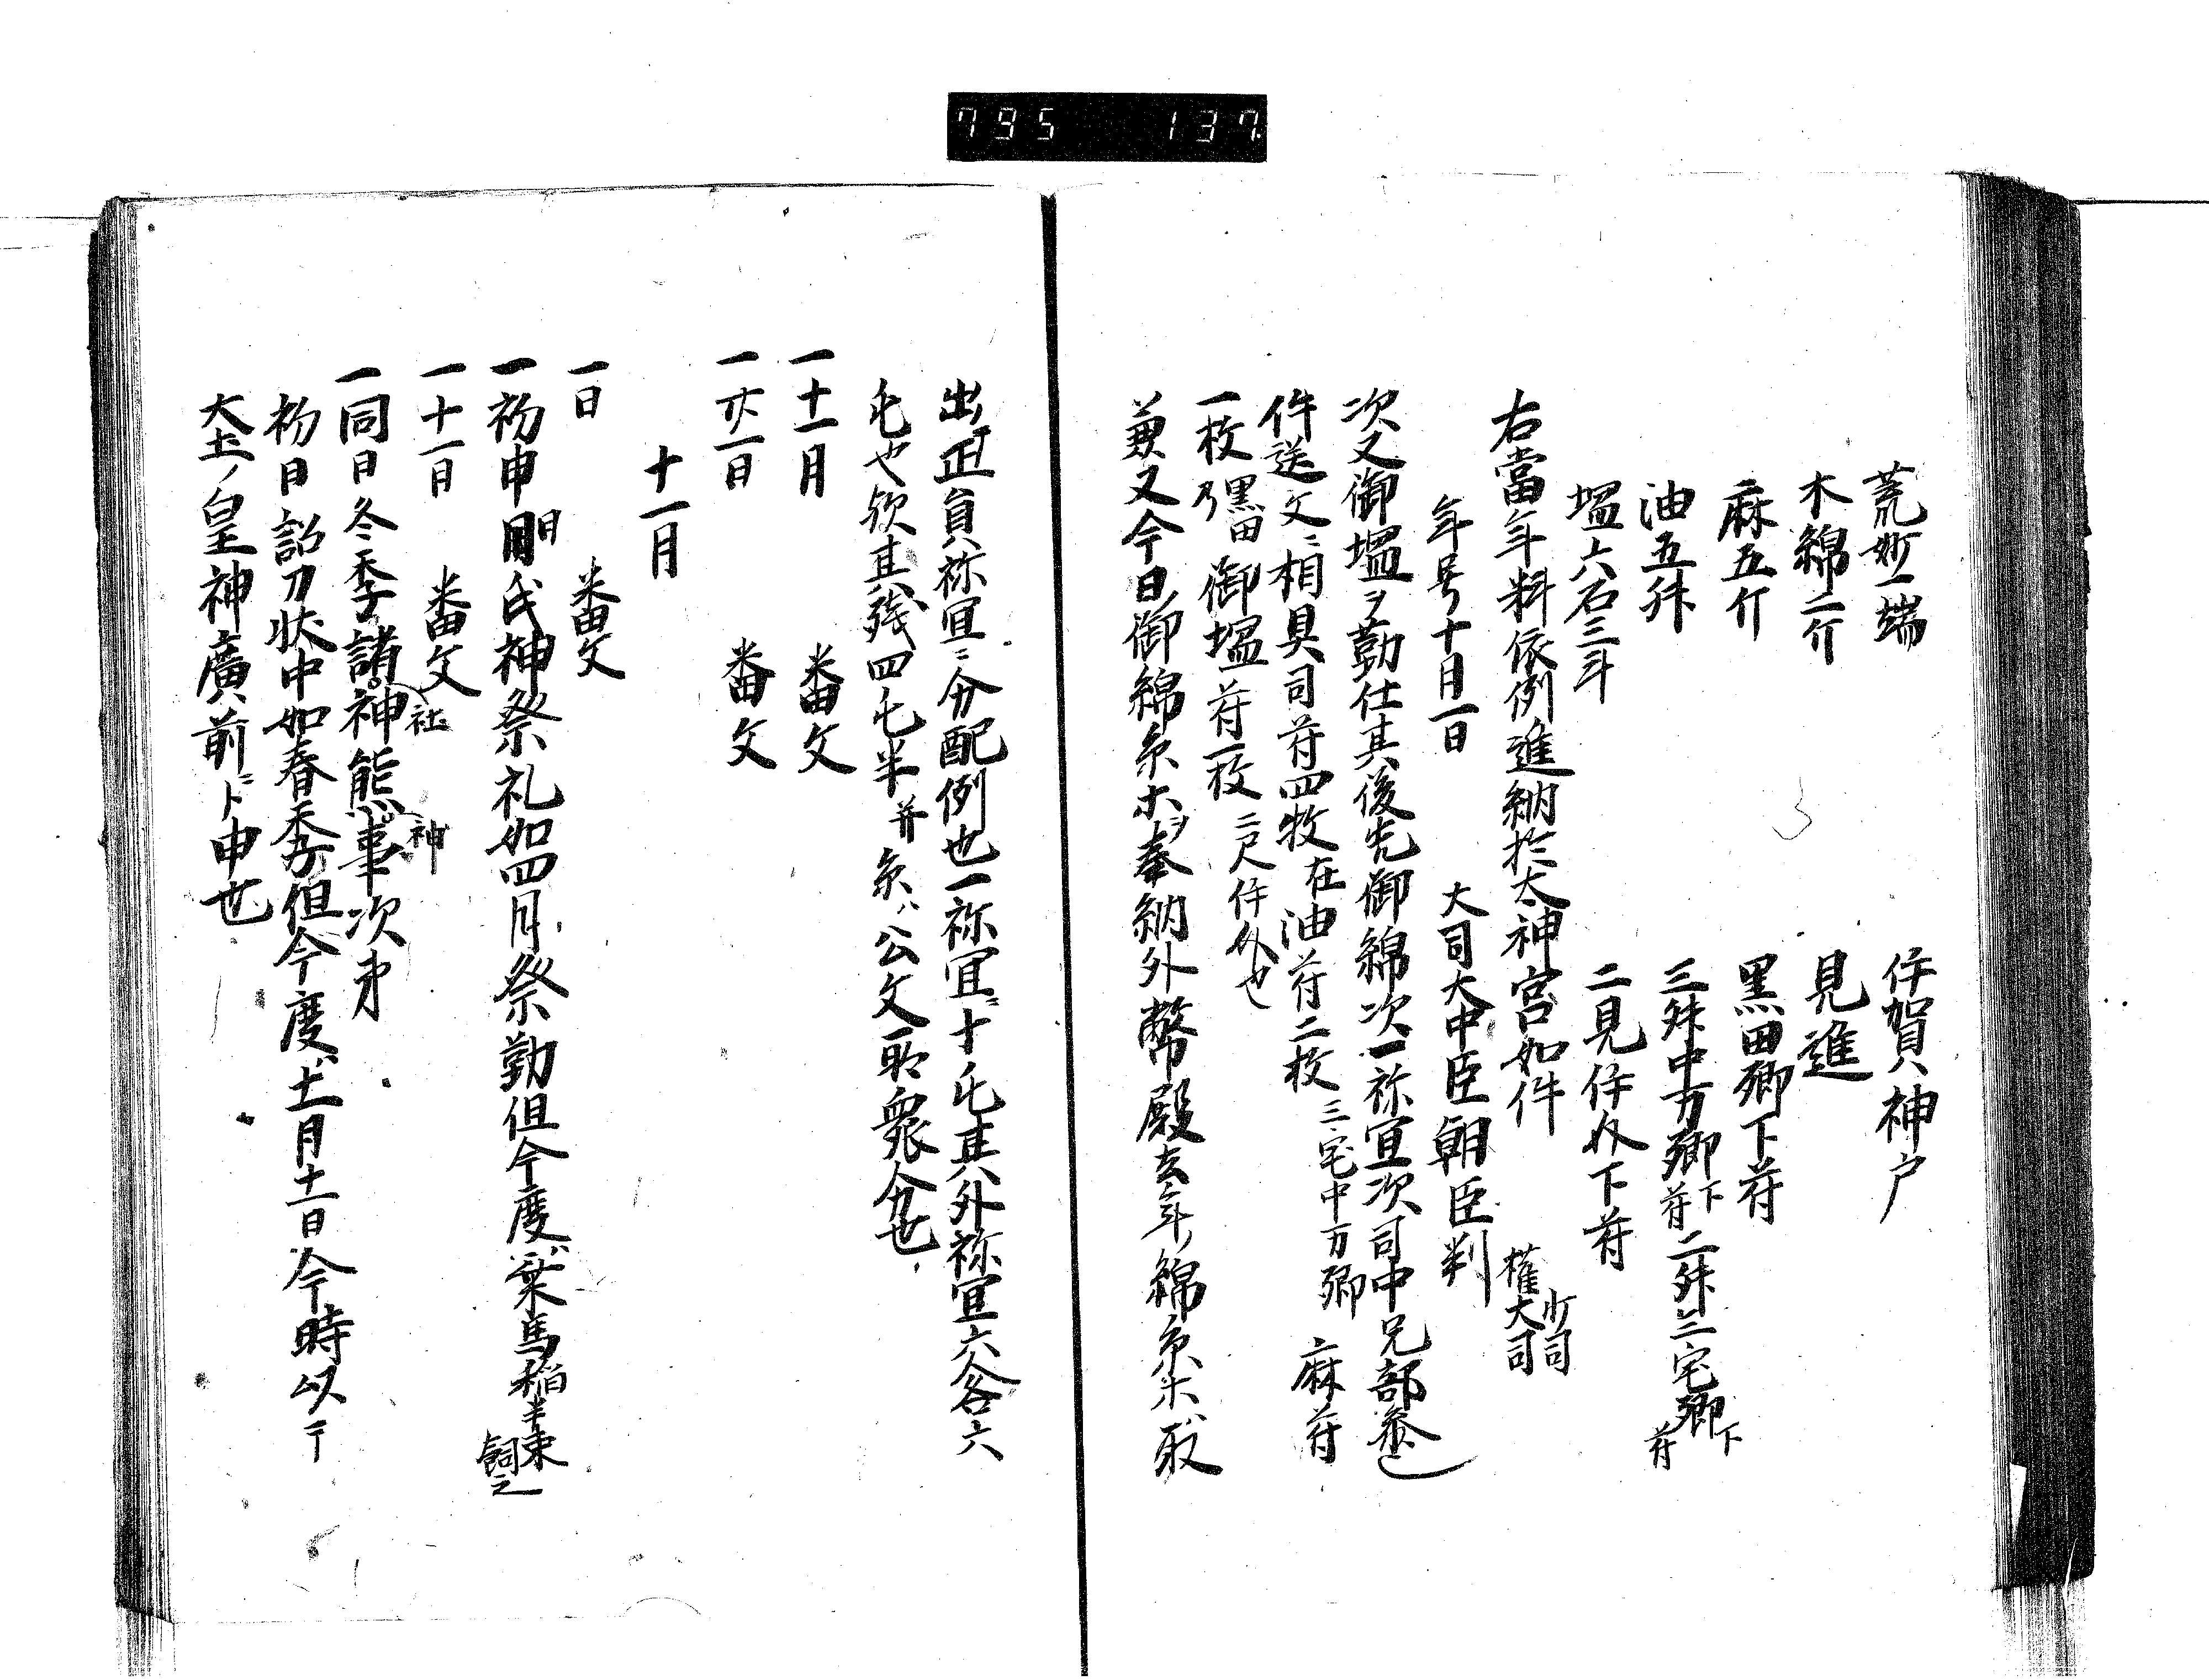 795 137
荒妙一端 伊賀神戸
木綿二斤 見進
麻五斤 黒田郷下符
油五舛 三舛中万郷下符二舛三宅郷下符
塩六石三斗 二見伊介下符
右當年料依例進納於太神宮如件
年号十月一日 大司大中臣朝臣判 権大司 少司
次又御塩ヲ勤仕其後先御綿次一祢宜次司中兄部参
件送文ニ相具司符四牧在油符二枚 三宅中万郷 麻符
一枚 黒田乃 御塩符一枚 二見伊介也
兼又今日御綿糸ホヲ奉納外幣殿去年綿糸ホヲ取
出正員祢宜ニ分配例也一祢宜ニ十屯其外祢宜六人各六
屯也欤其残四屯半并糸ハ公文所衆分也
一十一月 番文
一廿一日 番文
十一月
一日 番文
一初申日氏神祭礼如四月祭勤但今度ハ葉馬稲半束飼之
一十一日 番文
一同日冬季諸神社熊神事次第
初日詔刀状中如春季但今度ハ十一月十一日今時以テ
大土ノ皇神廣前ニト申也